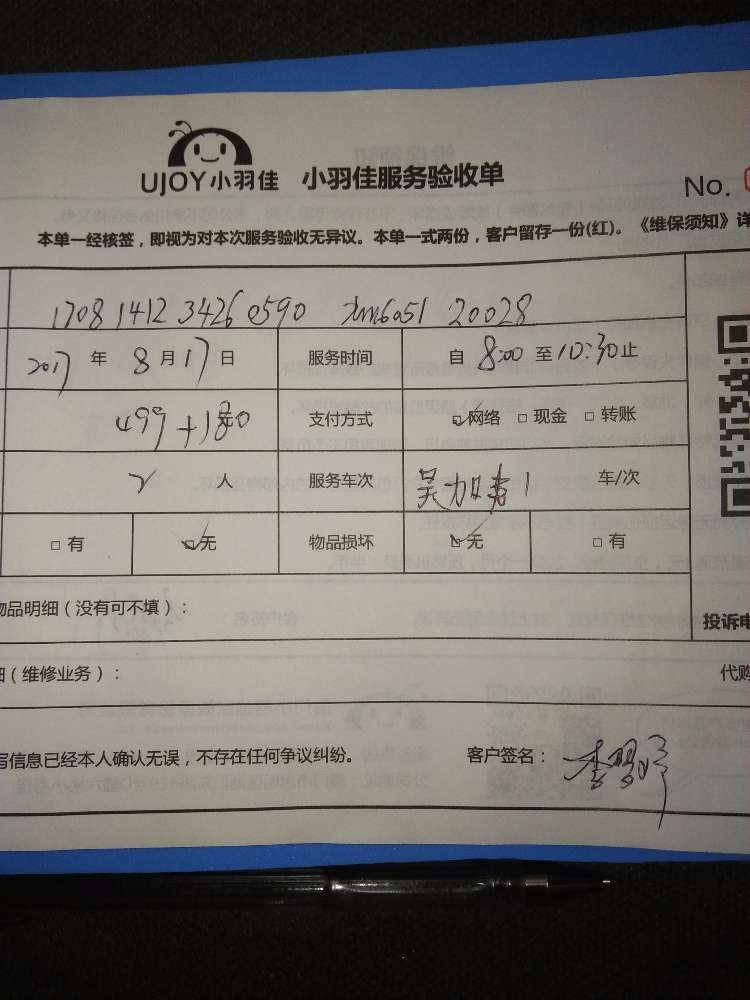 UJOY小羽佳 小羽佳服务验收单
No.
本单一经核签，即视为对本次服务验收无异议。本单一式两份，客户留存一份(红)。《维保须知》详
17081412 34260590 xm6051 20028
2017 年 8 月 17 日 服务时间 自 8:00 至 10:30 止
499+180 支付方式 ☑网络 □现金 □转账
2 人 服务车次 1 车/次
□有 ☑无 物品损坏 ☑无 □有
物品明细（没有可不填）：
投诉电
（维修业务）： 代购
写信息已经本人确认无误，不存在任何争议纠纷。 客户签名：